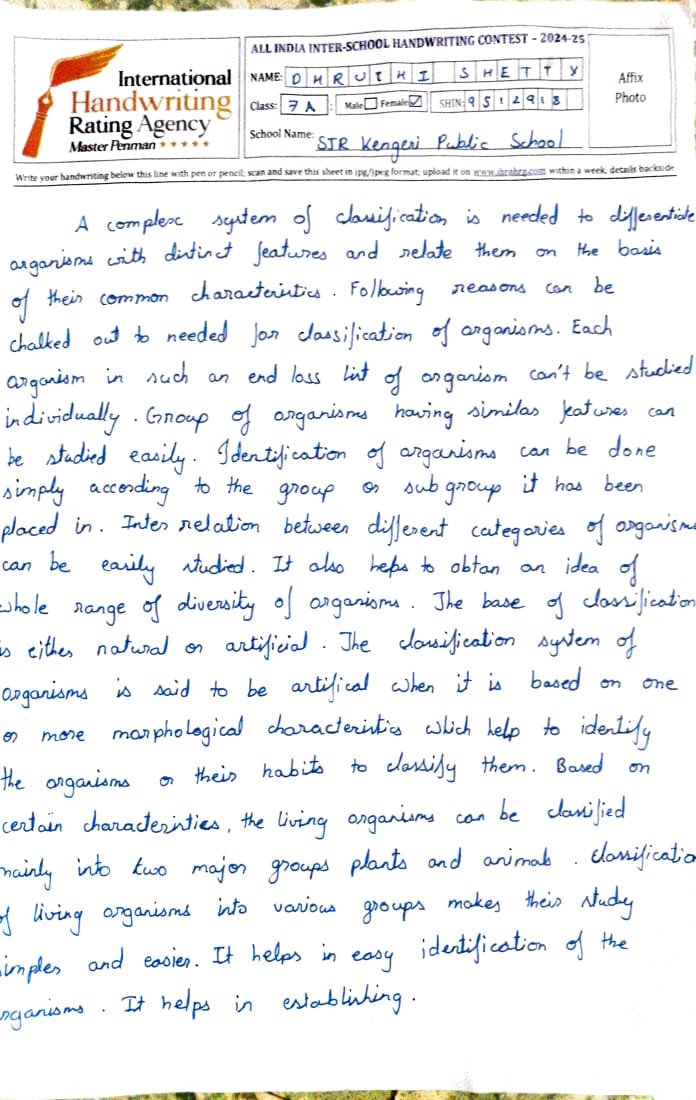 ALL INDIA INTER-SCHOOL HANDWRITING CONTEST - 2024-25
International
Handwriting
Rating Agency
Master Penman
NAME: DHRUTHI SHETTY
Class: 7A Male Female SHIN: 9512913
School Name: SJR Kengeri Public School
Affix
Photo
Write your handwriting below this line with pen or pencil, scan and save this sheet in jpg/jpeg format; upload it on www.ihrahrg.com within a week, details backside
A complex system of classification is needed to differentiate
organisms with distinct features and relate them on the basis
of their common characteristics. Following reasons can be
chalked out to needed for classification of organisms. Each
organism in such an end loss list of organism can't be studied
individually. Group of organisms having similar features can
be studied easily. Identification of organisms can be done
simply according to the group or sub group it has been
placed in. Inter relation between different categories of organisms
can be easily studied. It also helps to obtan an idea of
whole range of diversity of organisms. The base of classification
is either natural or artificial. The classification system of
organisms is said to be artifical when it is based on one
or more morphological characteristics which help to identify
the organisms or their habits to classify them. Based on
certain characteristies, the living organisms can be classified
mainly into two major groups plants and animals. classificatio
of living organisms into various groups makes their study
imples and easier. It helps in easy identification of the
rganisms. It helps in establishing.